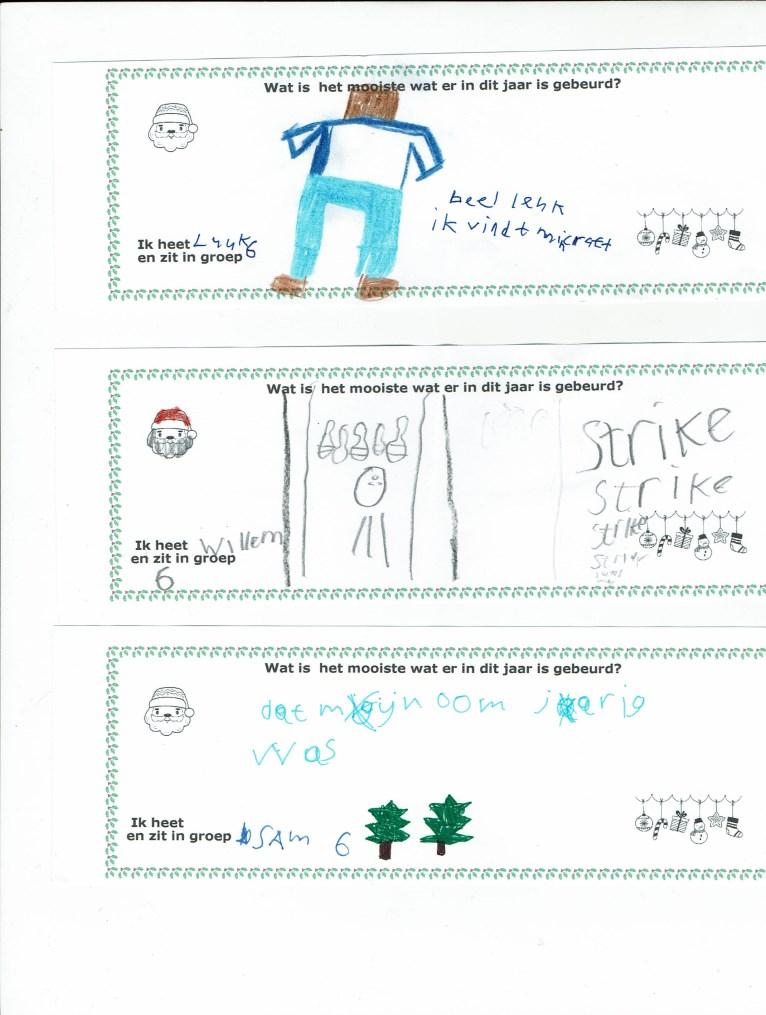 Wat is het mooiste wat er in dit jaar is gebeurd?
beel lehk
ik vindt micraft
Ik heet Luuk 6
en zit in groep
Wat is het mooiste wat er in dit jaar is gebeurd?
Strike
Strike
Strike
Ik heet Willem
en zit in groep
6
Wat is het mooiste wat er in dit jaar is gebeurd?
dat mijn oom jaarig
was
Ik heet
en zit in groep SAm 6